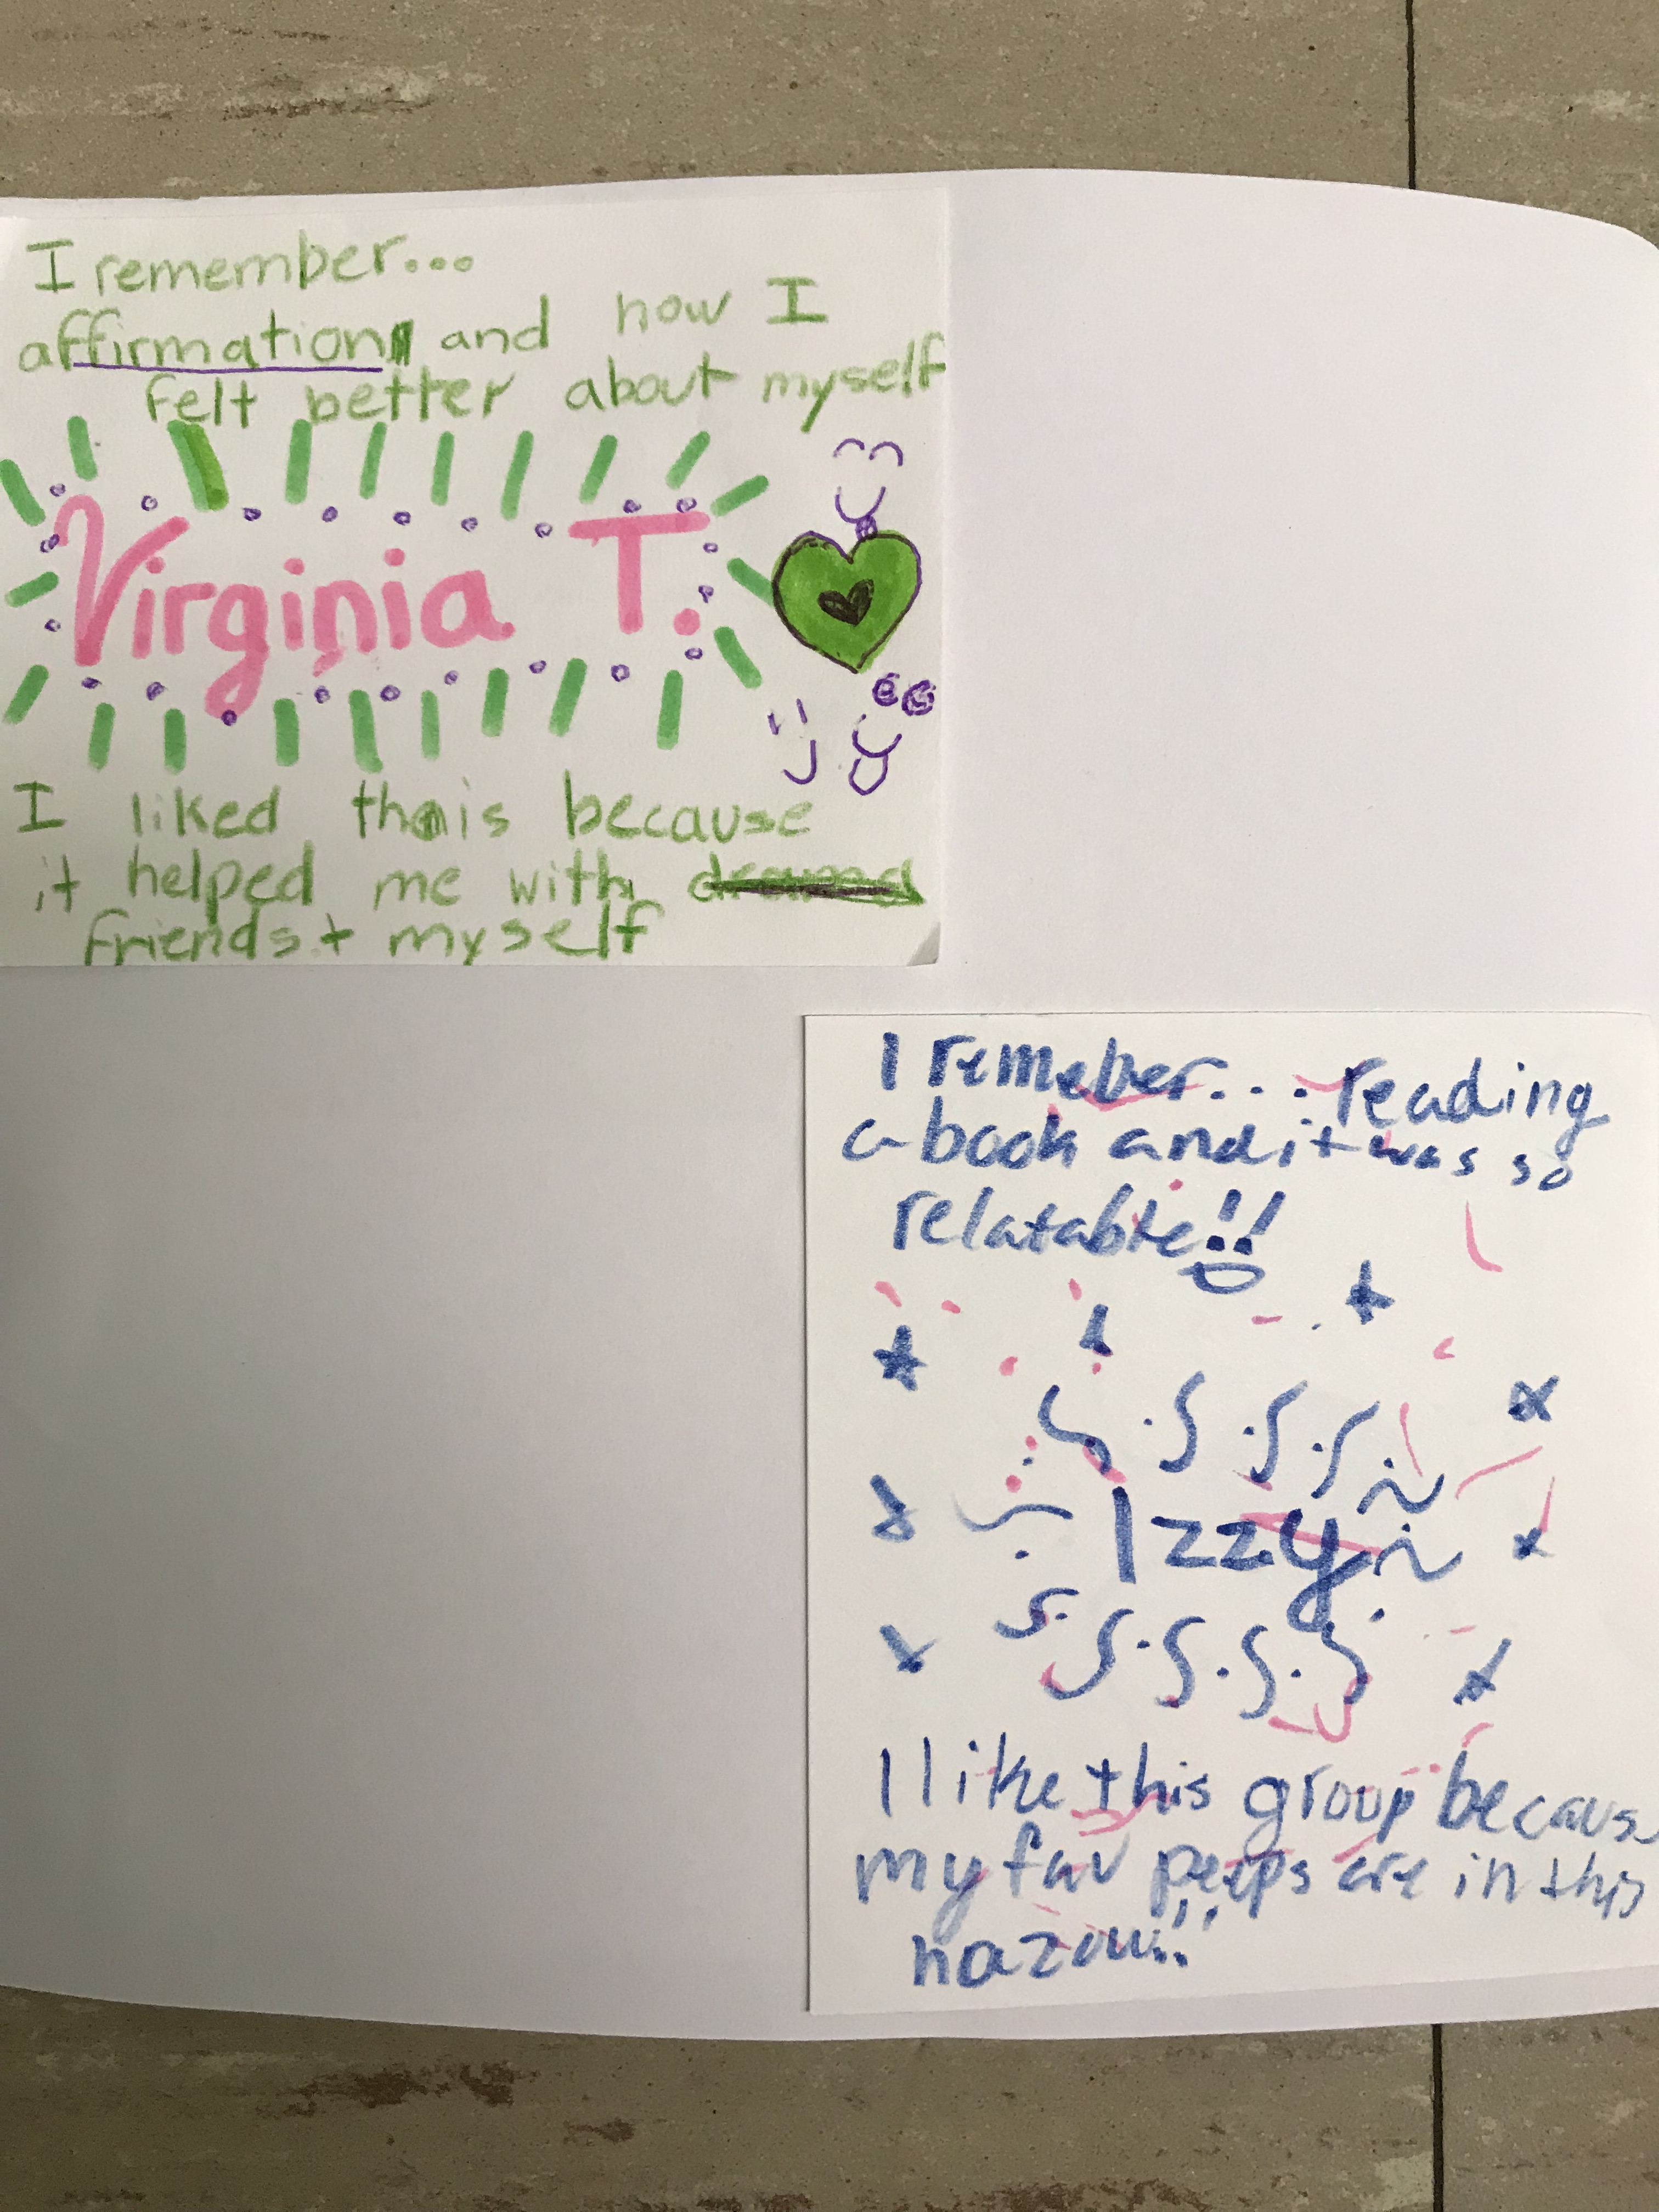 I remember...
affirmation and how I
felt better about myself
Virginia T.
I liked this because
it helped me with
friends + myself
I remeber... reading
a book and it was so
relatable!!
Izzy
I like this group because
my fav peeps are in this